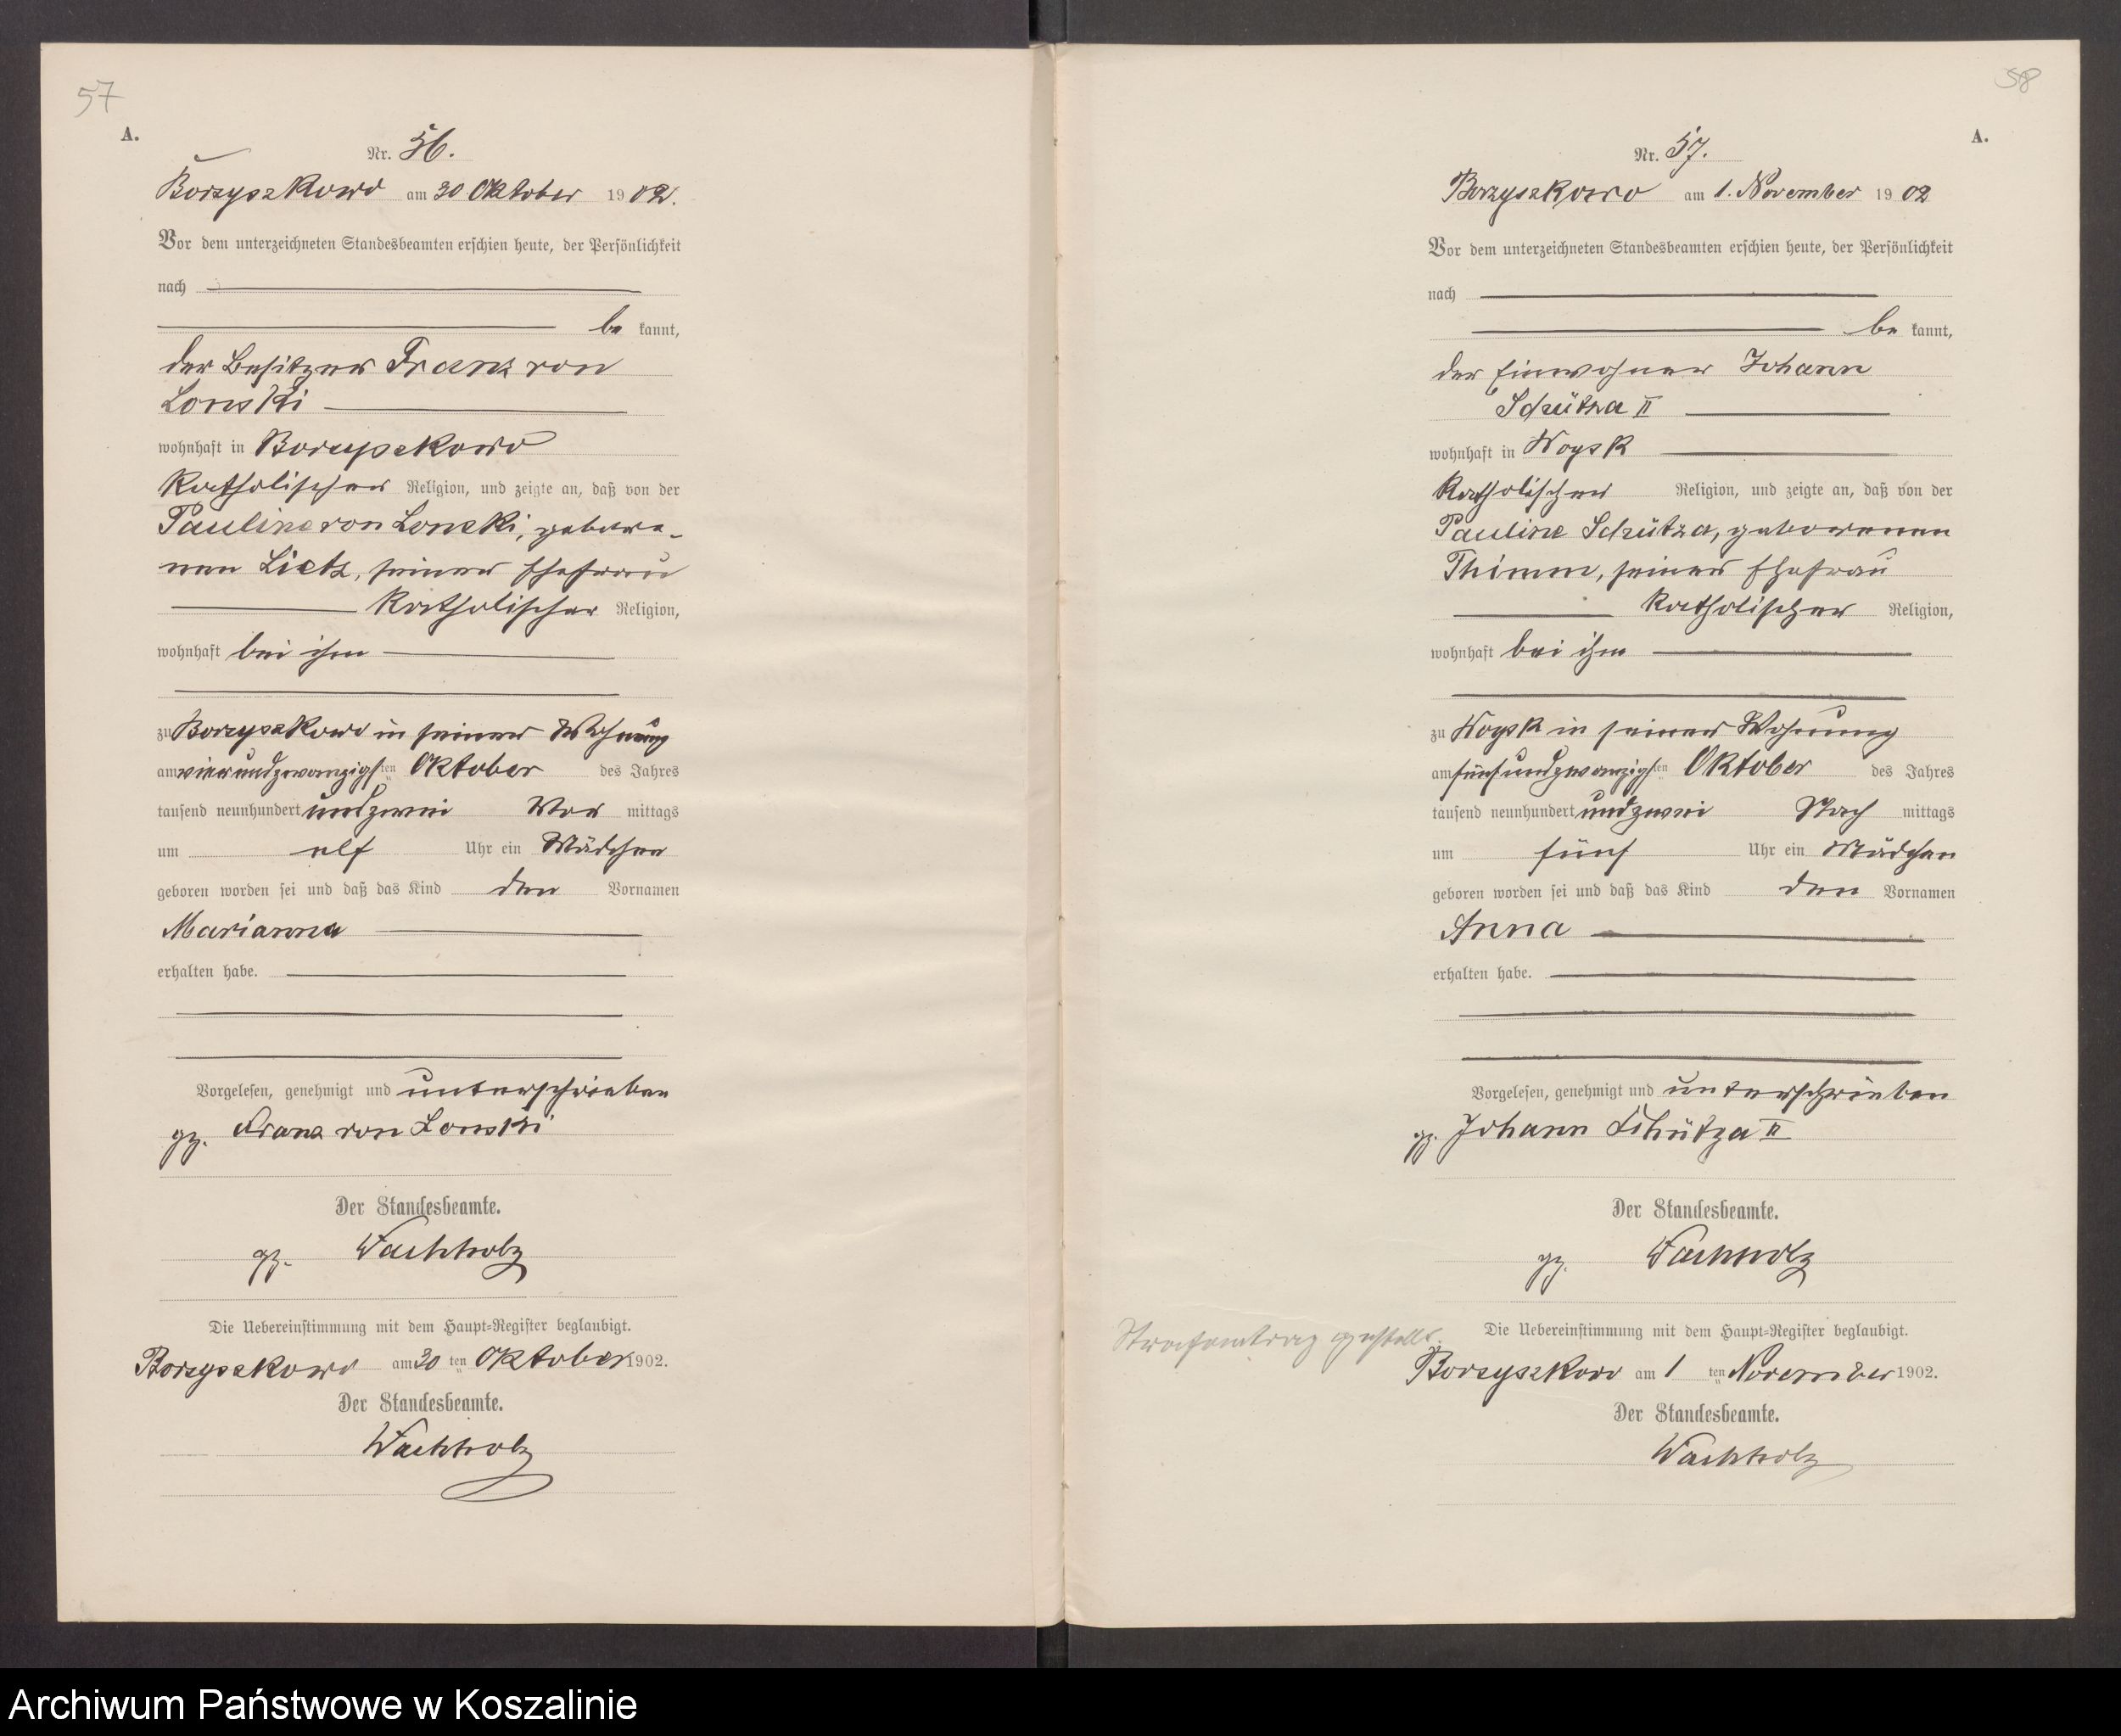 57
A.
Nr. 56.
Borzyszkowo am 30 Oktober 1902.
Vor dem unterzeichneten Standesbeamten erschien heute, der Persönlichkeit
nach
be kannt,
der Besitzer Franz von
Lonski
wohnhaft in Borzyszkowo
katholischer Religion, und zeigte an, daß von der
Pauline von Lonski, gebore-
nen Lietz, seiner Ehefrau
katholischer Religion,
wohnhaft bei ihm
zu Borzyszkowo in seiner Wohnung
am vierundzwanzigsten Oktober des Jahres
tausend neunhundert undzwei Vor mittags
um elf Uhr ein Mädchen
geboren worden sei und daß das Kind den Vornamen
Marianna
erhalten habe.
Vorgelesen, genehmigt und unterschrieben
gz. Franz von Lonski
Der Standesbeamte.
gz. Wachholz
Die Uebereinstimmung mit dem Haupt=Register beglaubigt.
Borzyszkowo am 30 ten Oktober 1902.
Der Standesbeamte.
Wachholz
58
A.
Nr. 57.
Borzyszkowo am 1. November 1902
Vor dem unterzeichneten Standesbeamten erschien heute, der Persönlichkeit
nach
be kannt,
der Einwohner Johann
Schütza II
wohnhaft in Woysk
katholischer Religion, und zeigte an, daß von der
Pauline Schütza, geborenen
Thimm, seiner Ehefrau
katholischer Religion,
wohnhaft bei ihm
zu Woysk in seiner Wohnung
am fünfundzwanzigsten Oktober des Jahres
tausend neunhundert undzwei Nach mittags
um fünf Uhr ein Mädchen
geboren worden sei und daß das Kind den Vornamen
Anna
erhalten habe.
Vorgelesen, genehmigt und unterschrieben
gz. Johann Schütza II
Der Standesbeamte.
gz. Wachholz
Strafantrag gestellt.
Die Uebereinstimmung mit dem Haupt=Register beglaubigt.
Borzyszkowo am 1 ten November 1902.
Der Standesbeamte.
Wachholz
Archiwum Państwowe w Koszalinie